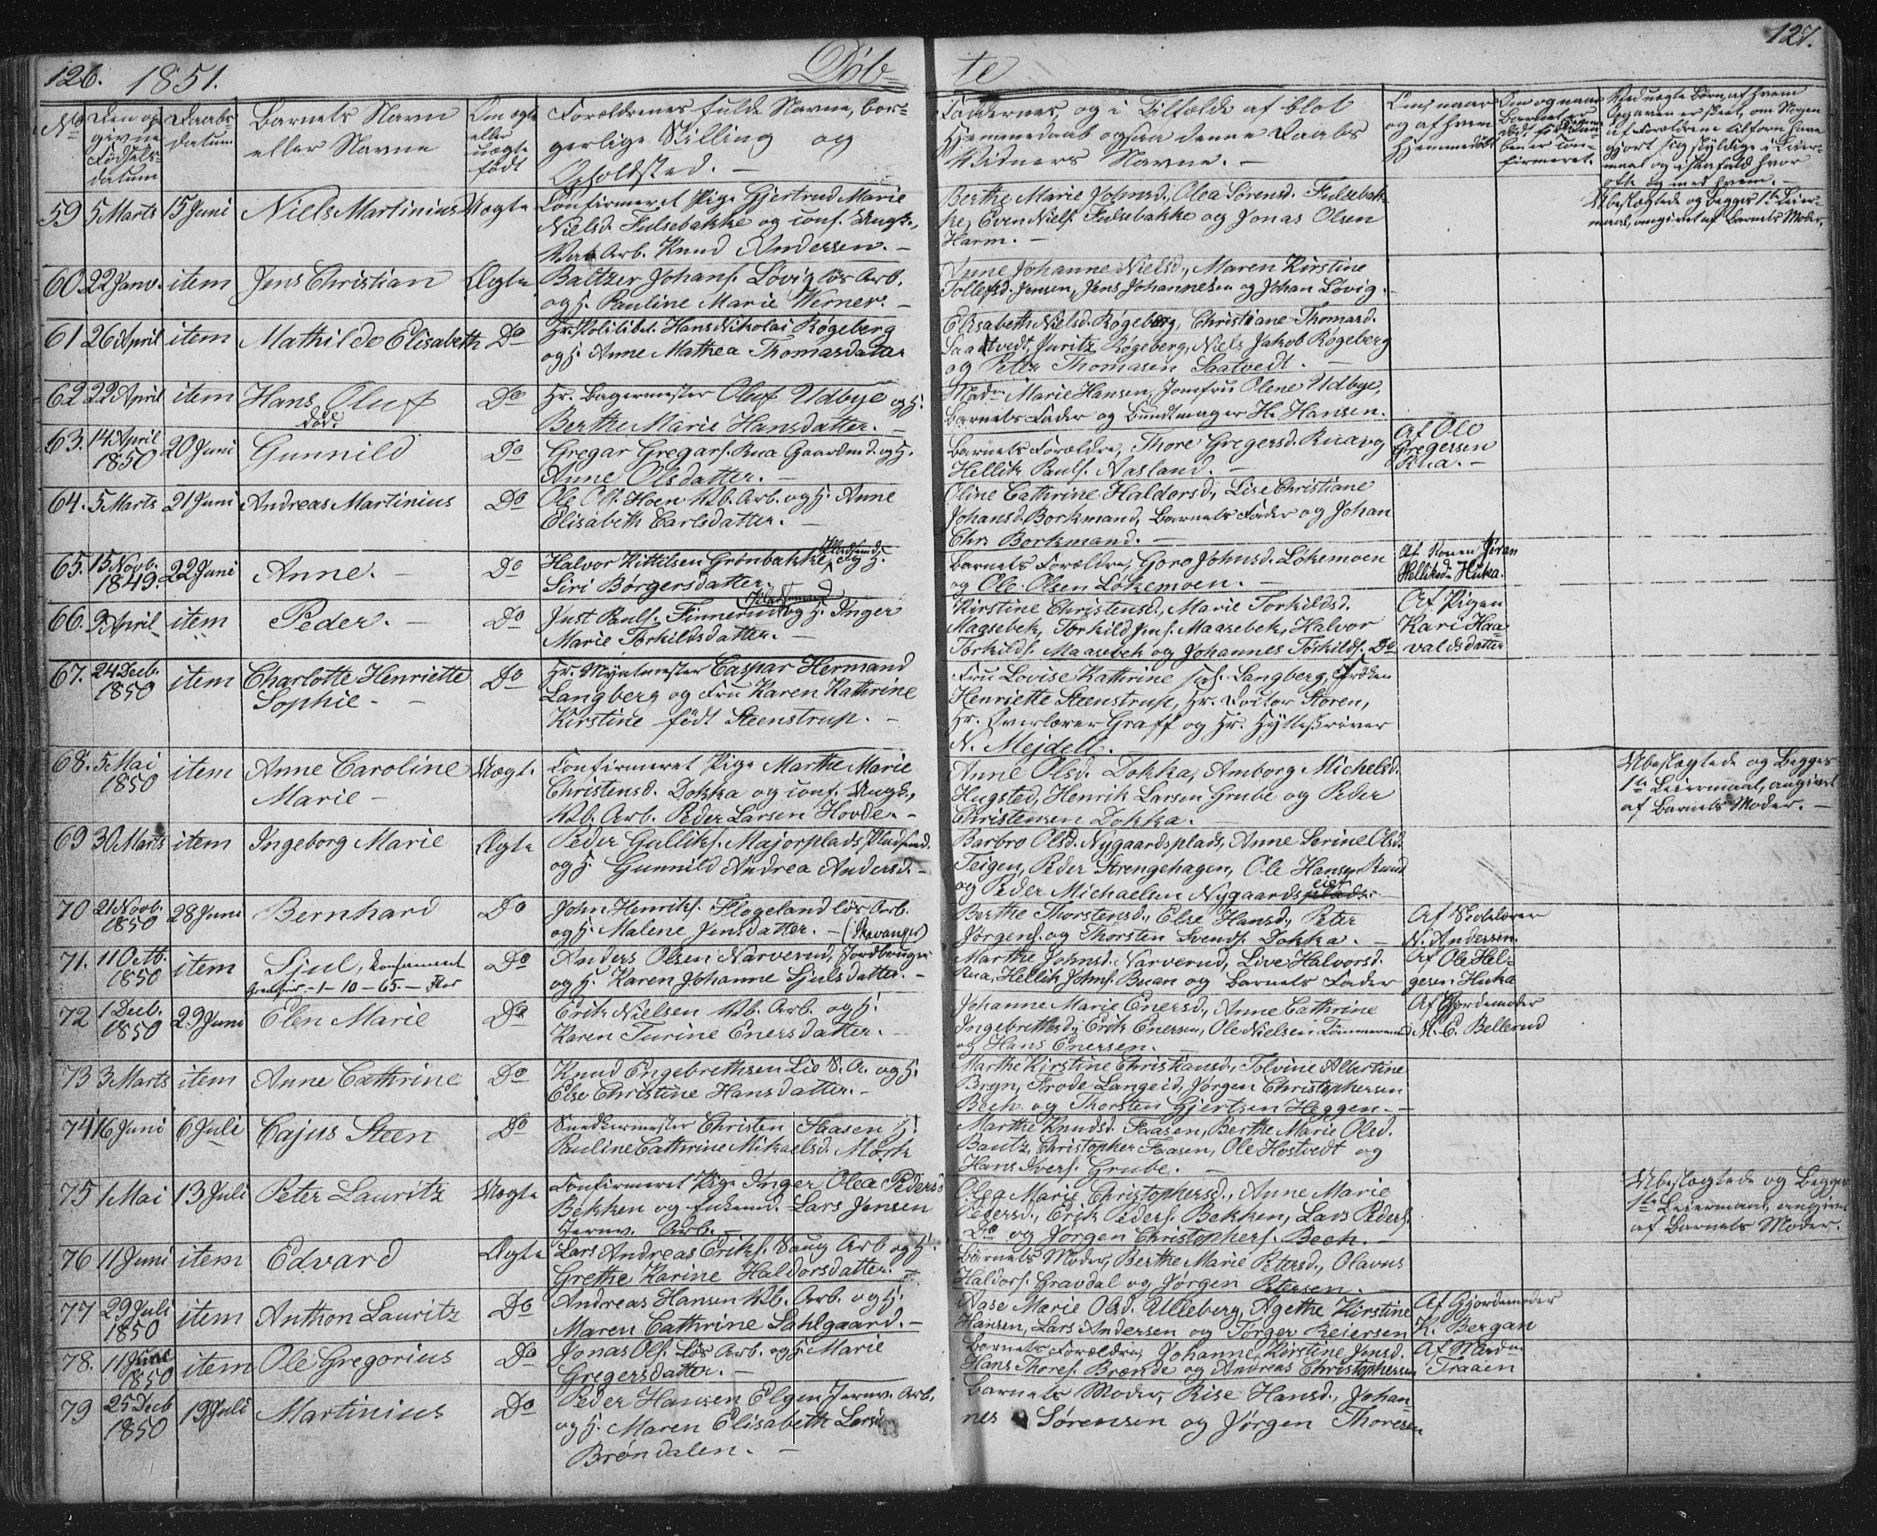 126. 1851. Døb- te 127.
No
Den op-
givne
Fødsels-
datum
Daabs-
datum
Barnets Navn
eller Navne
Om ægte
eller
uægte
født
Forældrenes fulde Navne, bor-
gerlige Stilling og
Opholdsted. -
Faddernes, og i Tilfælde af blot
Hjemmedaab ogsaa denne Daabs
Vidners Navne. -
Om, naar
og af hvem
Hjemmedøbt
Om og naar
Barnet er
confirmeret.
Ved uægte Børn, af hvem
Opgaven er skeet, om Nogen
af Forældrene tilforn have
gjort sig skyldige i Leier-
maal og i saafald hvor
ofte og med hvem. -
59 5 Marts 15 Juni Niels Martinius Uægte Confirmeret Pige Gjertrud Marie
Nielsd. Fulsebakke og conf. Ungk.,
Vaab. Arb. Knud Andersen. -
Berthe Marie Johnsd., Olea Sørensd. Fulsebak-
ke, Even Niels. Fulsebakke og Jonas Olsen
Harm. -
Ubeslægtede og begges 1te Leier-
maal, angivet af Barnets Moder.
60 22 Janv. item Jens Christian Ægte Baltzer Johans. Løvig løs Arb.
og H. Pauline Marie Werner. -
Anne Johanne Nielsd., Maren Kirstine
Tollefsd. Jensen, Jens Johannesen og Johan Løvig. -
61 26 April item Mathilde Elisabeth Do Hr. Politibet. Hans Nikolai Røgeberg
og H. Anne Mathea Thomasdatter
Elisabeth Nielsd. Røgeberg, Christiane Thomasd.
Saatvedt, Juritz Røgeberg, Niels Jakob Røgeberg
og Peter Thomasen Saatvedt. -
62 22 April item Hans Oluf Do Hr. Bagermester Oluf Udbye og H.
død.
Berthe Marie Hansdatter. -
Mad. Marie Hansen, Jomfru Olene Udbye,
Barnets Fader og Bundtmager H. Hansen.
63. 14 April
1850 20 Juni Gunnild Do Gregar Gregars. Rua Gaardmd. og H.
Anne Olsdatter. -
Barnets Forældre, Thore Gregersd. Rua og
Hellik Pauls. Aasland. -
Af Ole
Gregersen
Rua. -
64. 5 Marts 21 Juni Andreas Martinius Do Ole C. N. Hoen Kb. Arb. og H. Anne
Elisabeth Carlsdatter. -
Oline Cathrine Haldorsd., Lise Christiane
Johansd. Borkmand, Barnets Fader og Johan
Chr. Borkmand. -
65. 15 Novb.
1849. 22 Juni Anne. - Do Halvor Kittilsen Grønbakke Pladsmd. og H.
Siri Børgersdatter. -
Barnets Forældre, Goro Johnsd. Løkemoen
og Ole Olsen Løkemoen. -
Af Konen Jøran
Helliksd. Huka.
66. 9 April item Peder. - Do Just Pauls. Finnerud og H. Inger
Marie Torkildsdatter. -
Kirstine Christensd., Marie Torkildsd.
Maasebek, Torkild Jens. Maasebek, Halvor
Torkilds. Maasebek og Johannes Torkilds. Do
Af Pigen
Kari Haa-
valdsdatter
67. 24 Decb.
1850 item Charlotte Henriette
Sophie. - Do Hr. Myntmester Caspar Hermand
Langberg og Fru Karen Kathrine
Kirstine født Steenstrup. -
Fru Lovise Kathrine Langberg, Frøken
Henriette Steenstrup, Hr. Doctor Støren,
Hr. Overlærer Graff og Hr. Hytteskriver
N. Mejdell.
68. 5 Mai
1850 item Anne Caroline
Marie - Uægt. Confirmeret Pige Marthe Marie
Christensd. Dokka og conf. Ungk.,
Kb. Arb. Peder Larsen Hovde. -
Anne Olsd. Dokka, Amborg Michelsd.
Hugsted, Henrik Larsen Grube og Peder
Christensen Dokka. -
Ubeslægtede og Begges
1te Leiermaal, angivet
af Barnets Moder. -
69 30 Marts item Ingeborg Marie Ægte Peder Gulliks. Majorplads Pladsmd.
og H. Gunnild Andrea Andersd. -
Barbro Olsd. Nygaardsplads, Anne Serine Olsd.
Teigen, Peder Strengehagen, Ole Hansen Rund
og Peder Michaelsen Nygaardseiet
70 21 Novb.
1850 28 Juni Bernhard Do John Henriks. Flogeland løs Arb.
og H. Malene Jensdatter. - (Stavanger)
Berthe Thorstensd., Else Hansd., Peter
Jørgens. og Thorsten Svends. Dokka. -
Af
N. Andersen.
71. 11 Octb.
1850 item Sjul, Confirmeret
1-10-65. - Do Anders Olsen Narverud, Jordbruger
og H. Karen Johanne Sjulsdatter. -
Marthe Johnsd. Narverud, Live Halvorsd.
Rua, Hellik Johns. Buan og Barnets Fader
Af Ole Hel-
gesen Huka
72 1 Decb.
1850 29 Juni Elen Marie Do Erik Nielsen Kb. Arb. og H.
Karen Turine Enersdatter. -
Johanne Marie Enersd., Anne Cathrine
Ingebrethsd., Erik Enersen, Ole Nielsen Tømmermd
og Hans Enersen. -
Af Gjordemoder
M. C. Bellerud
73 3 Marts item Anne Cathrine Do Knud Engebrethsen Lie S. A. og H.
Else Christine Hansdatter. -
Marthe Kirstine Christiansd., Tolvine Albertine
Bryn, Frode Langeid, Jørgen Christophersen
Bech og Thorsten Gjertsen Heggen. -
74 16 Juni 6 Juli Cajus Steen Do Snedkermester Christen Faasen H.
Pauline Cathrine Mikaelsd. Mørk
Marthe Knudsd. Faasen, Berthe Marie Olsd.
Bautz, Christopher Faasen, Ole Hostvedt og
Hans Ivers. Grube. -
75 1 Mai 13 Juli Peter Lauritz Uægte Confirmeret Pige Inger Olea Pedersd
Bekken og Enkemd. Lars Jensen
Jernv. Arb. -
Olea Marie Christophersd., Anne Marie
Pedersd., Erik Peders. Bekken, Lars Peders.
Do og Jørgen Christophers. Bech. -
Ubeslægtede og Begges
1te Leiermaal, angivet
af Barnets Moder.
76 11 Juni item Edvard Ægte Lars Andreas Eriks. Saug Arb. og H.
Grethe Karine Haldorsdatter. -
Barnets Moder, Berthe Marie Petersd., Olavus
Haldors. Gravdal og Jørgen Petersen. -
77 29 Juli
1850 item Anthon Lauritz Do Andreas Hansen Kb. Arb. og H.
Maren Cathrine Dahlgaard. -
Aase Marie Olsd. Ulleberg, Agethe Kirstine
Hansen, Lars Andersen og Tørger Reiersen
Af Gjordemoder
K. Bergan
78. 11 June
1850 item Ole Gregorius Do Jonas Ols. Løs Arb. og H. Marie
Gregersdatter. -
Barnets Forældre, Johanne Kirstine Jensd.
Hans Thores. Brænde og Andreas Christophersen
Af
Traaen
79 25 Decb
1850 19 Juli Martinius Do Peder Hansen Elgen Jernv. Arb.
og H. Maren Elisabeth Larsd
Brøndalen. -
Barnets Moder, Rise Hansd., Johan-
nes Sørensen og Jørgen Thoresen